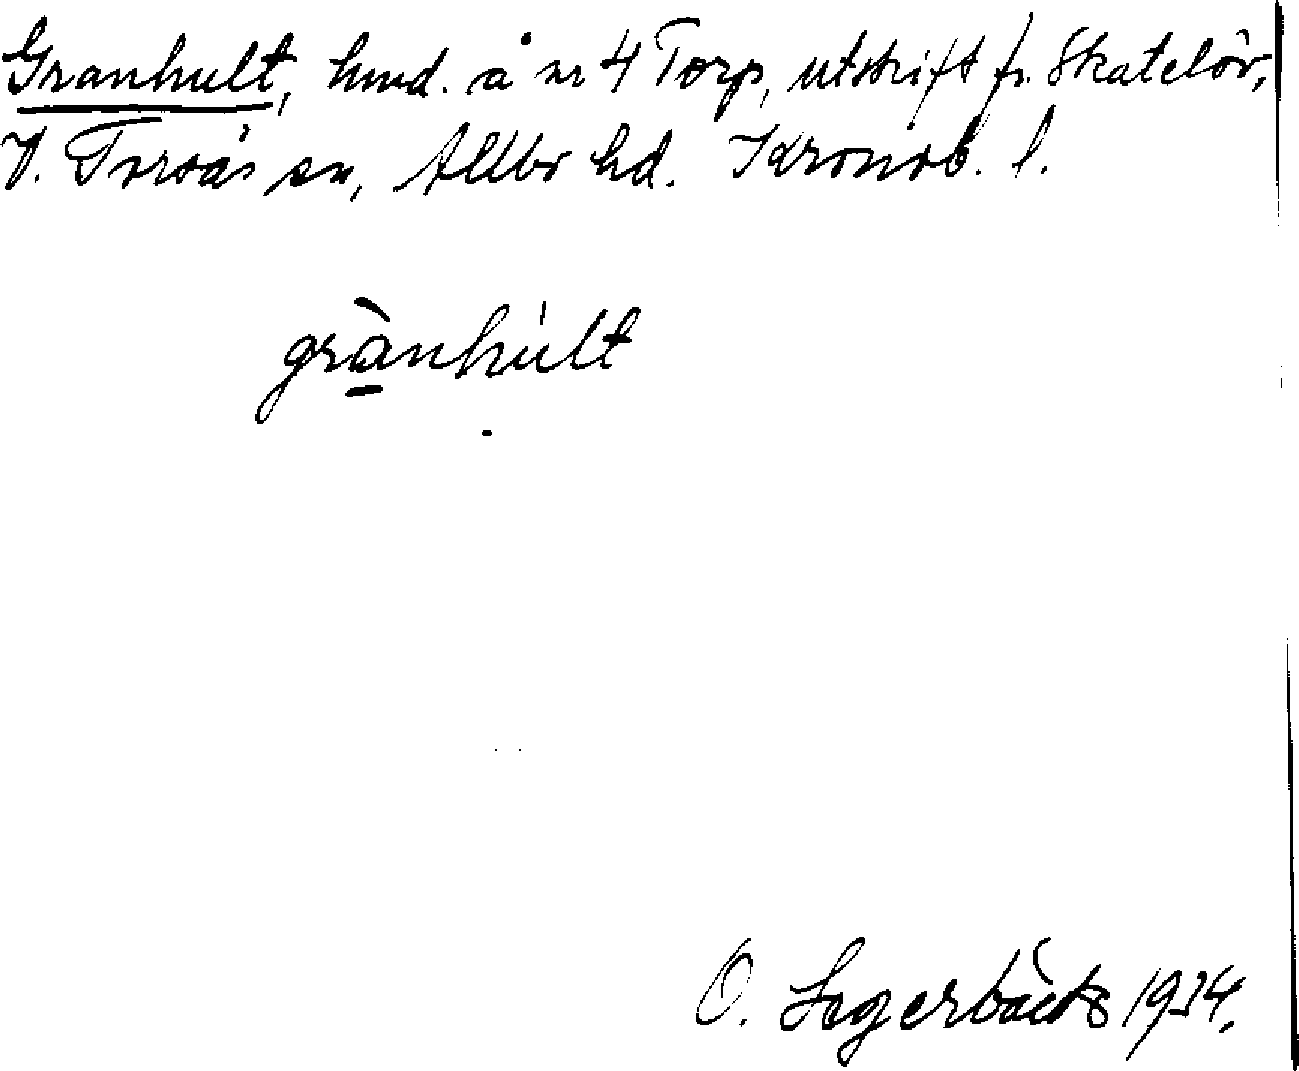 Granhult, hmd. å nr 4 Torp, utskift fr. Skatelöv,
V. Torsås sn, Allbo hd. Kronob. l.
grànhúlt
O. 1934.